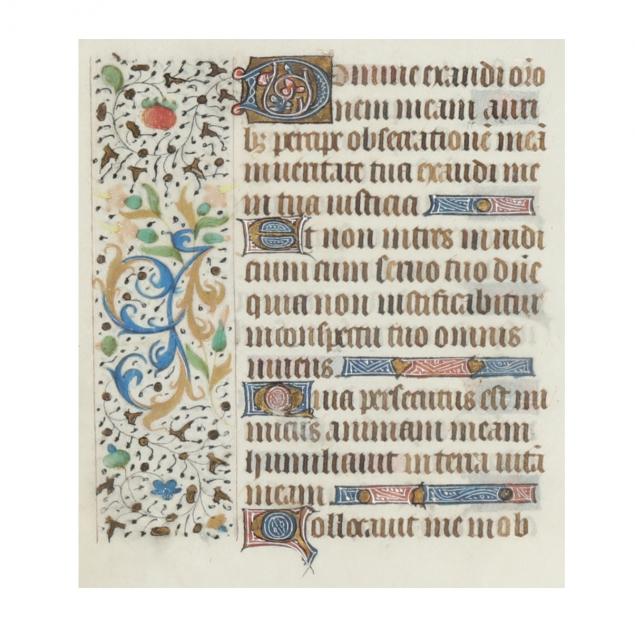 Domine exaudi orõ
nem meam auri
bꝫ percipe obsecrationē meā
in ueritate tua exaudi me
in tua iusticia
Et non intres in iudi
cium cum seruo tuo dñe
quia non iustificabitur
in conspectu tuo omnis
uiuens
Quia persecutus est ini
micus animam meam
humiliauit in terra uitā
meam
Collocauit me in ob